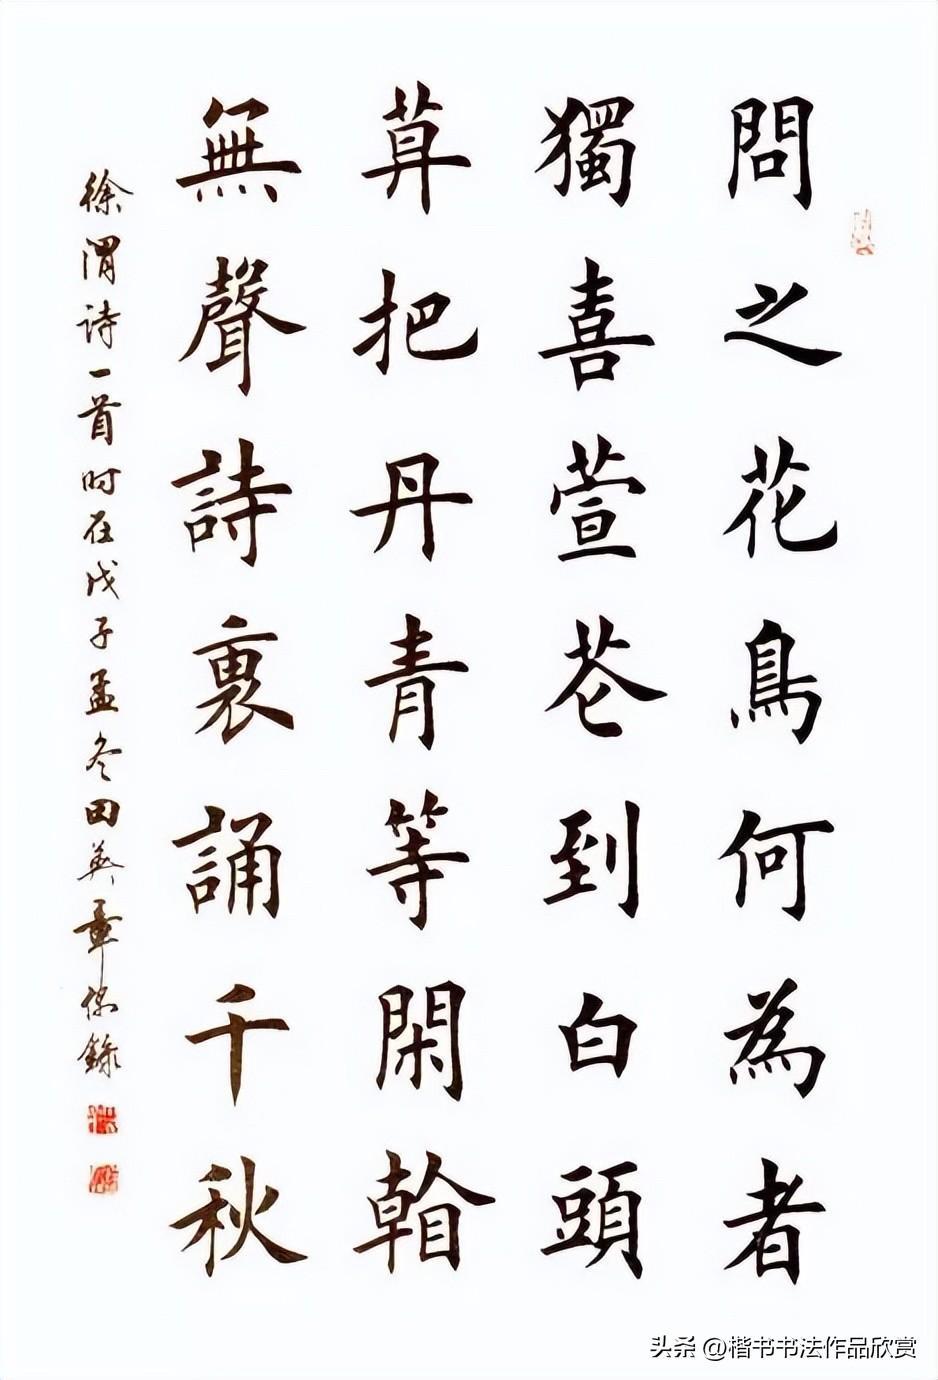 問之花鳥何為者
獨喜萱芲到白頭
莫把丹青等閑看
無聲詩裏誦千秋
徐渭詩一首时在戊子孟冬田英章錄
头条 @楷书书法作品欣赏